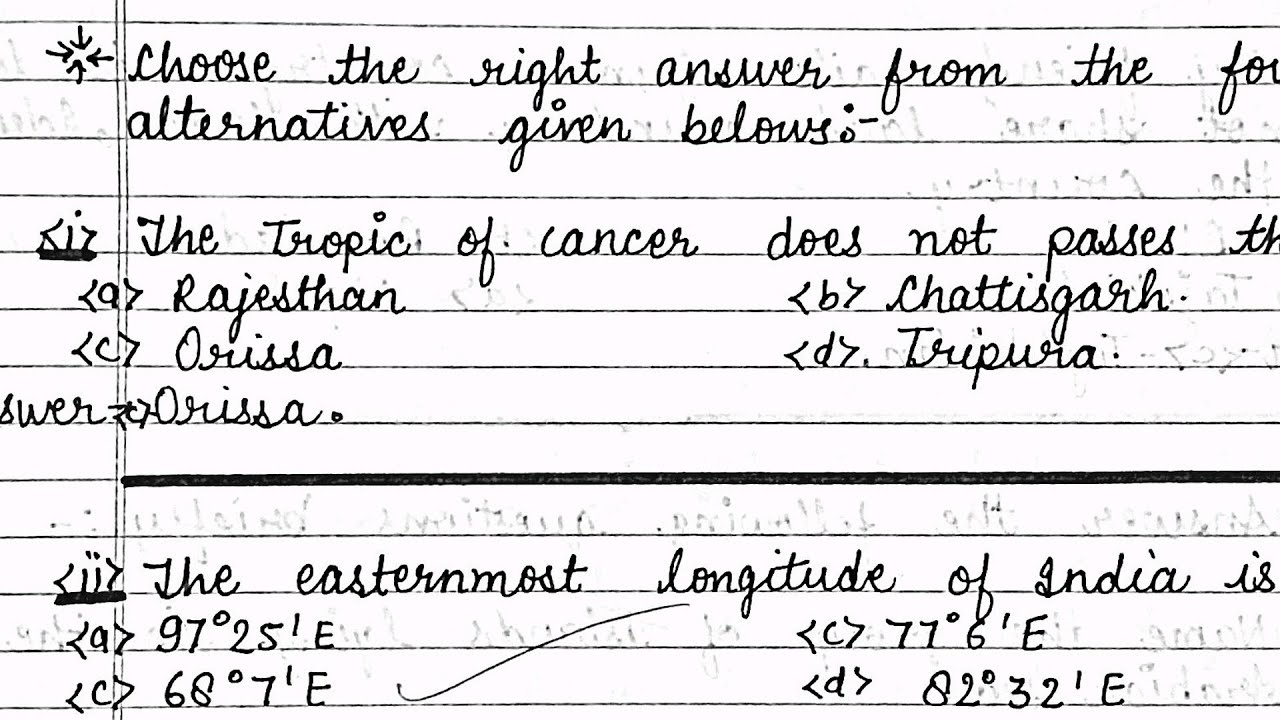 Choose the right answer from the
alternatives given belows:-
<i> The Tropic of cancer does not passes
<a> Rajesthan <b> Chattisgarh.
<c> Orissa <d>. Tripura.
<c> Orissa.
<ii> The easternmost longitude of India is
<a> 97°25'E <c> 77°6'E
<c> 68°7'E <d> 82°32'E